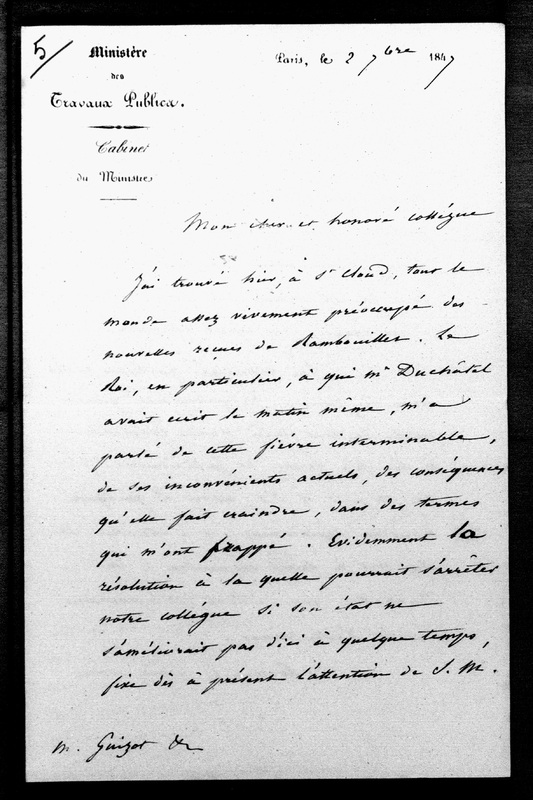 5/
Ministère
des
Travaux Publics.
Cabinet
du Ministre
Paris, le 2 7bre 1847
Mon cher et honoré collègue
J'ai trouvé hier, à St Cloud, tout le
monde assez vivement préoccupé des
nouvelles reçues de Rambouillet. Le
Roi, en particulier, à qui Mr Duchâtel
avait écrit le matin même, m'a
parlé de cette fièvre interminable,
de ses inconvénients actuels, des conséquences
qu'elle fait craindre, dans des termes
qui m'ont frappé. Evidemment la
résolution à la quelle pourrait s'arrêter
notre collègue si son état ne
s'améliorait pas d'ici à quelque temps,
fixe dès à présent l'attention de S. M.
M. Guizot &c